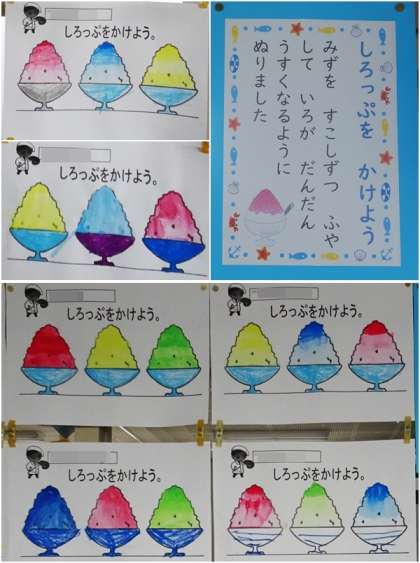 しろっぷをかけよう。
しろっぷを　かけよう
みずを　すこしずつ　ふや
して　いろが　だんだん
うすくなるように
ぬりました
しろっぷをかけよう。
しろっぷをかけよう。
しろっぷをかけよう。
しろっぷをかけよう。
しろっぷをかけよう。